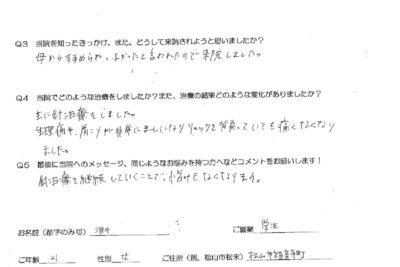 Q3 当院を知ったきっかけ、また、どうして来院されようと思いましたか?
母からすすめられ、よかったと言われたので来院しました。
Q4 当院でどのような治療をしましたか?また、治療の結果どのような変化がありましたか?
主に針治療をしました。
生理痛や、肩こりが非常にましになりリュックを背負っていても痛くなくなり
ました。
Q5 最後に当院へのメッセージ、同じようなお悩みを持つ方へなどコメントをお願いします!
針治療を継続していくことで、悩みもなくなります。
お名前(苗字のみ可) ご職業 学生
ご年齢 21 性別 女 ご住所(例、松山市松末) 松山市福音寺町